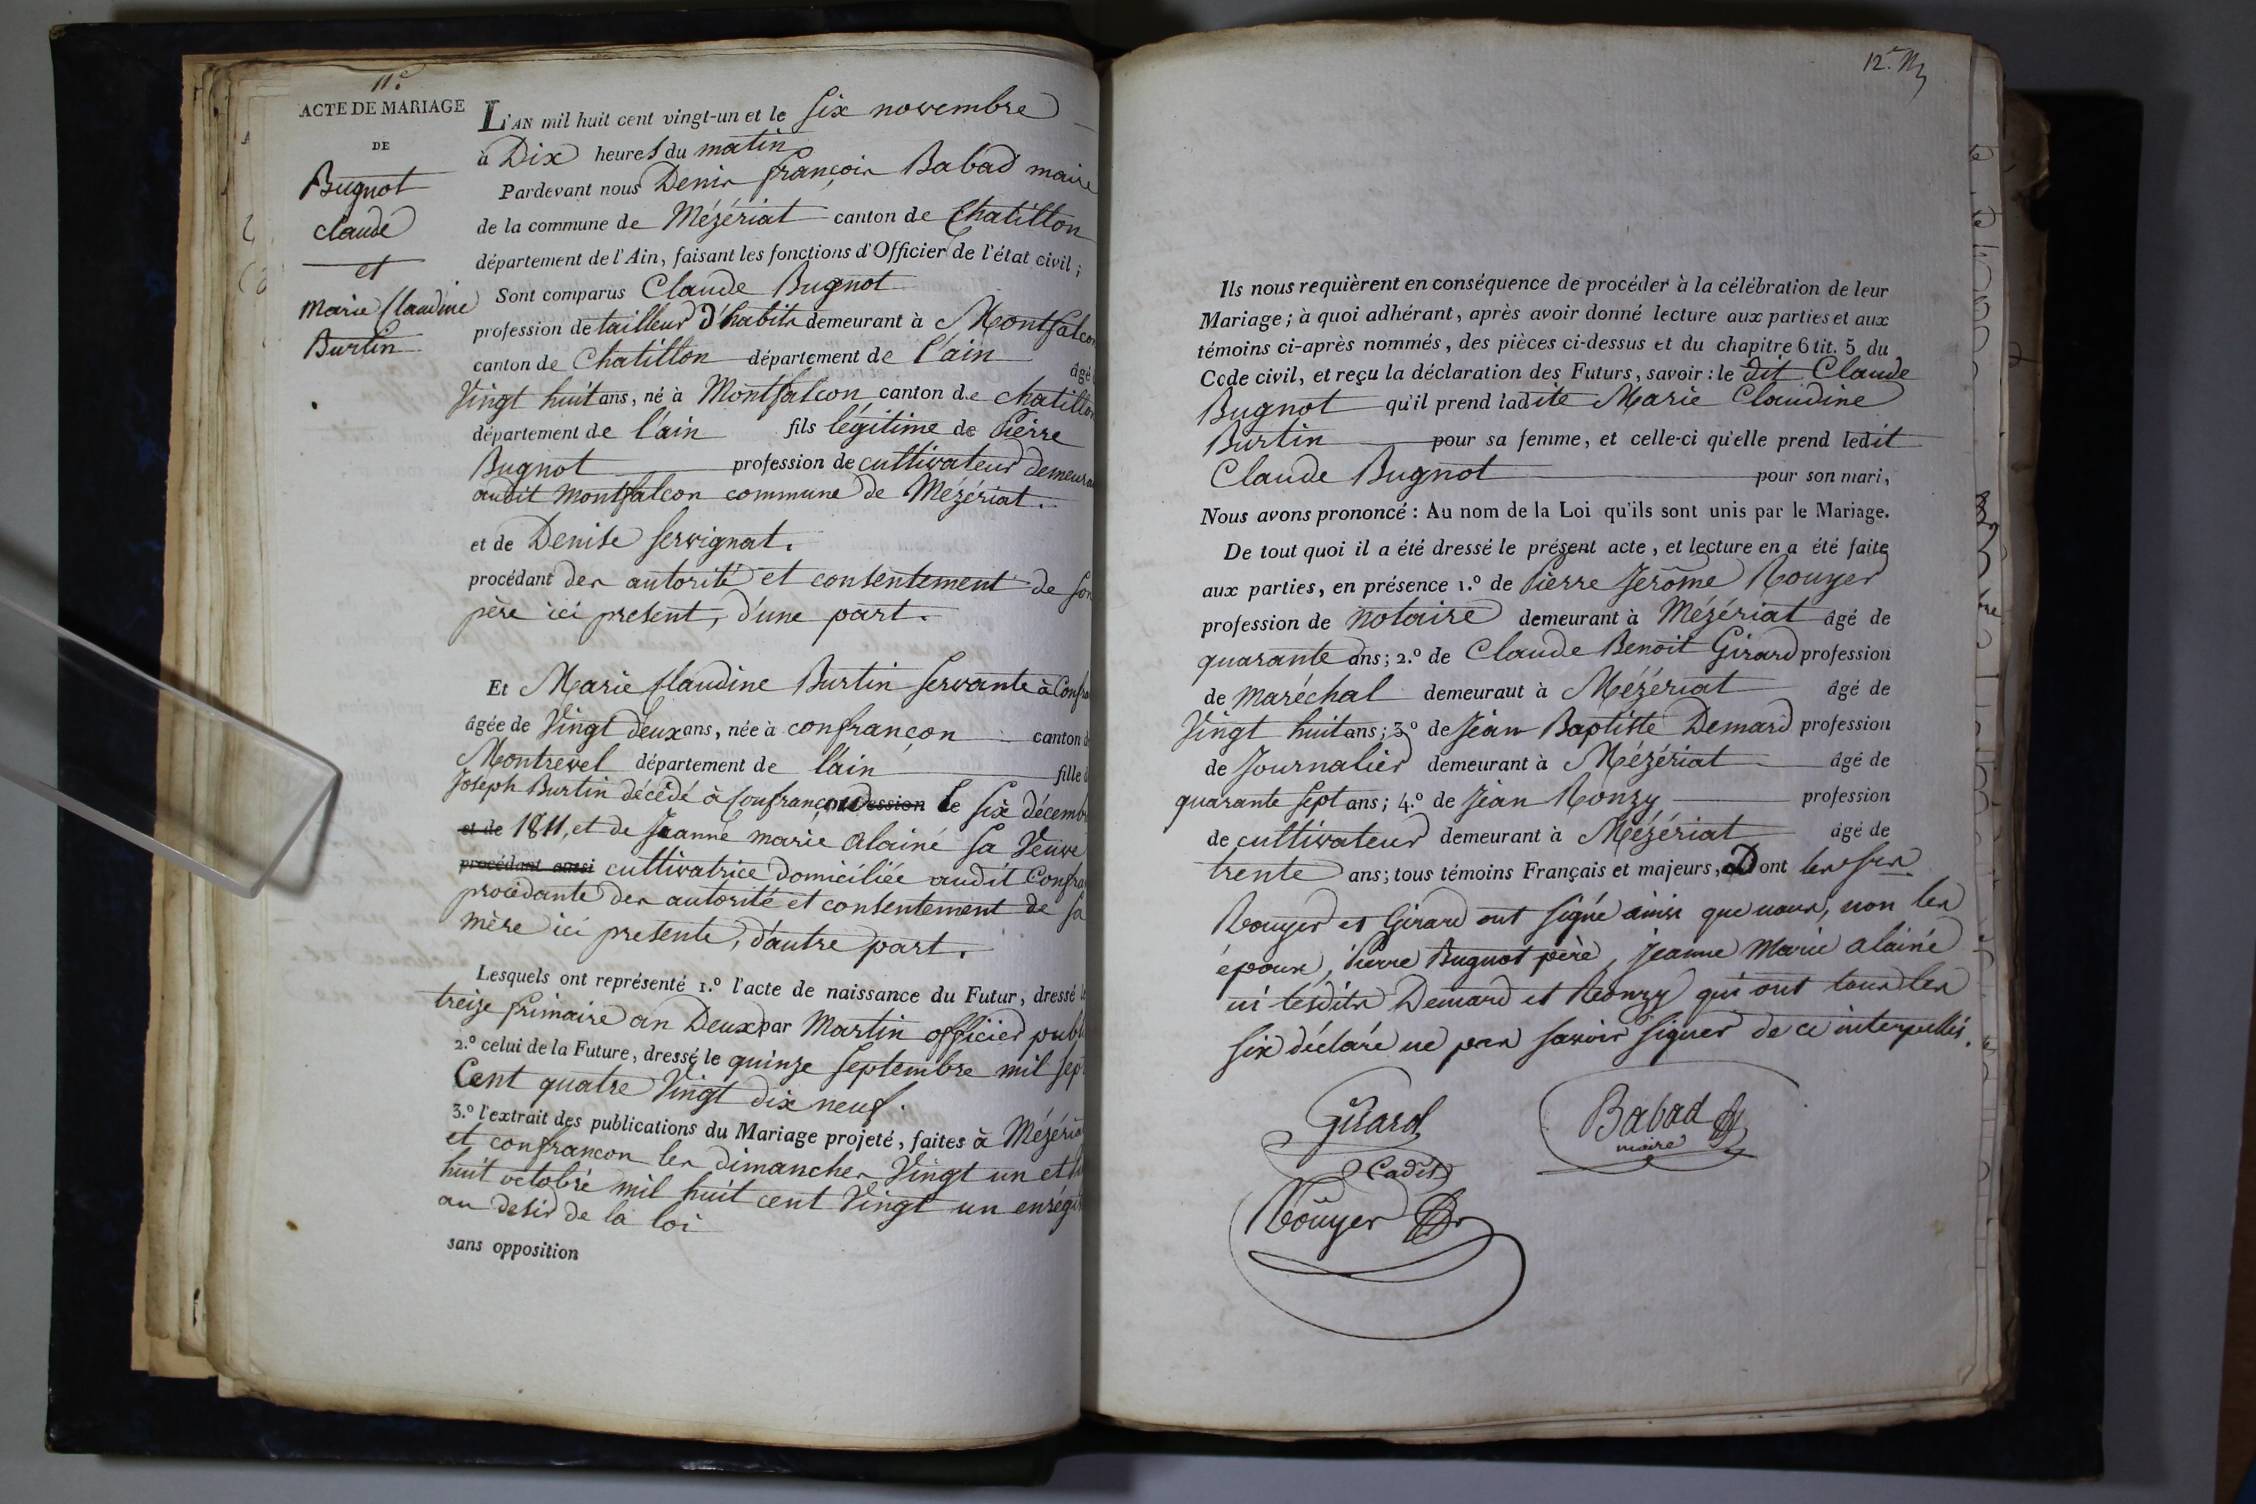 11.e
ACTE DE MARIAGE
DE
Bugnot
claude
et
Marie Claudine
Burtin
L'AN mil huit cent vingt-un et le six novembre
à Dix heures du matin
Pardevant nous Denis françois Babad maire
de la commune de Mézériat canton de Chatillon
département de l'Ain, faisant les fonctions d'Officier de l'état civil;
Sont comparus Claude Bugnot
profession de tailleur d'habits demeurant à Montfalcon
canton de Chatillon département de l'ain âgé
Vingt huit ans, né à Montfalcon canton de chatillon
département de l'ain fils légitime de Pierre
Bugnot profession de cultivateur demeura
audit montfalcon commune de Mézériat.
et de Denise Servignat.
procédant des autorité et consentement de son
père ici present, d'une part.
Et Marie Claudine Burtin Servante à Confran
âgée de Vingt deux ans, née à confrançon canton d
Montrevel département de l'ain fille d
Joseph Burtin décédé à Confrançon le six décemb
et de 1811, et de Jeanne marie alainé sa Veuve
procédant aussi cultivatrice domiciliée audit Confra
procédante des autorité et consentement de sa
mère ici presente, d'autre part.
Lesquels ont représenté 1.º l'acte de naissance du Futur, dressé l
treize frimaire an Deux par Martin officier publ
2.º celui de la Future, dressé le quinze septembre mil sept
Cent quatre Vingt dix neuf.
3.º l'extrait des publications du Mariage projeté, faites à Mézéria
et confrancon les dimanches Vingt un et
huit octobre mil huit cent Vingt un enrégis
au desir de la loi
sans opposition
12.e
Ils nous requièrent en conséquence de procéder à la célébration de leur
Mariage; à quoi adhérant, après avoir donné lecture aux parties et aux
témoins ci-après nommés, des pièces ci-dessus et du chapitre 6 tit. 5 du
Code civil, et reçu la déclaration des Futurs, savoir: le dit Claude
Bugnot qu'il prend ladite Marie Claudine
Burtin pour sa femme, et celle-ci qu'elle prend ledit
Claude Bugnot pour son mari,
Nous avons prononcé: Au nom de la Loi qu'ils sont unis par le Mariage.
De tout quoi il a été dressé le présent acte, et lecture en a été faite
aux parties, en présence 1.º de Pierre Jerôme Rouyer
profession de notaire demeurant à Mézériat âgé de
quarante ans; 2.º de Claude Benoit Girard profession
de maréchal demeuraut à Mézériat âgé de
Vingt huit ans; 3.º de Jean Baptiste Demard profession
de Journalier demeurant à Mézériat âgé de
quarante sept ans; 4.º de Jean Ronzy profession
de cultivateur demeurant à Mézériat âgé de
trente ans; tous témoins Français et majeurs, Dont les srs
Rouyer et Girard ont signé ainsi que nous, non les
époux, Pierre Bugnot père, Jeanne Marie alainé
ni lesdits Demard et Ronzy qui ont tous les
six déclaré ne pas savoir signer de ce interpellés.
Girard
Cadet
Babad
maire
Rouyer